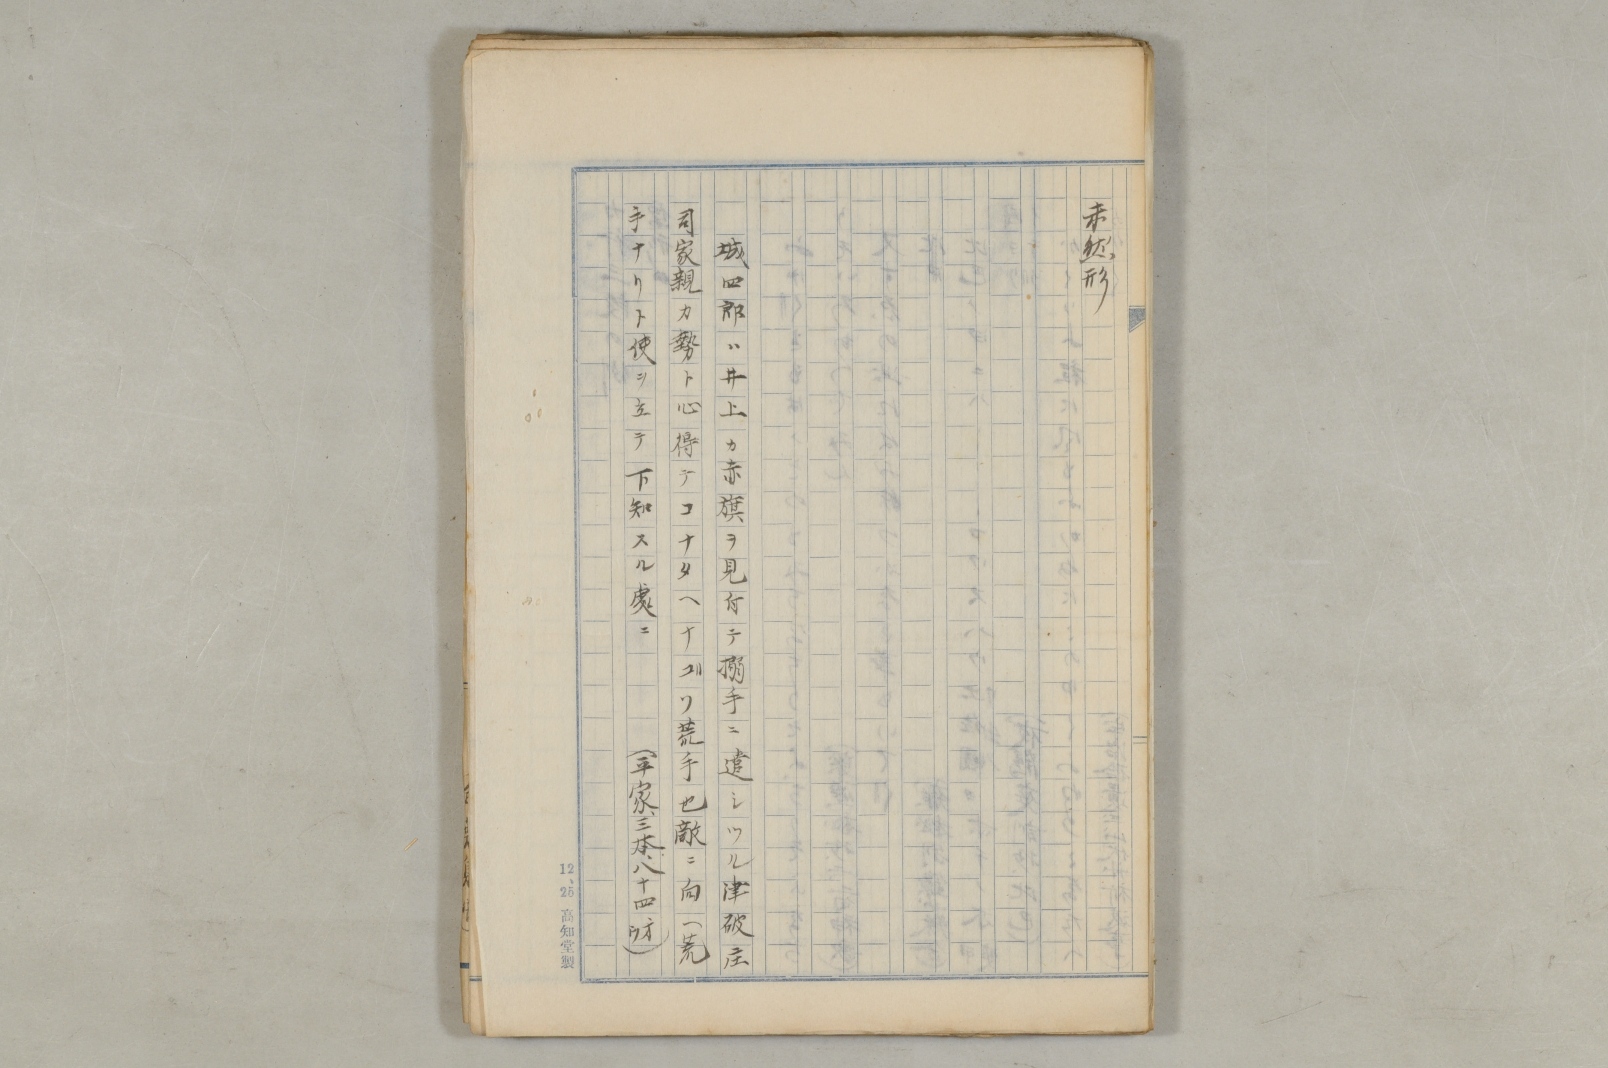 未然形
城四郎ハ井上カ赤旗ヲ見付テ搦手ニ遣シツル津破庄
司家親カ勢ト心得テコナタヘナヨリソ荒手也敵ニ向ヘ荒
手ナリト使ヲ立テ下知スル處ニ
(平家、三本、八十四 ウ)
12、25 高知堂製